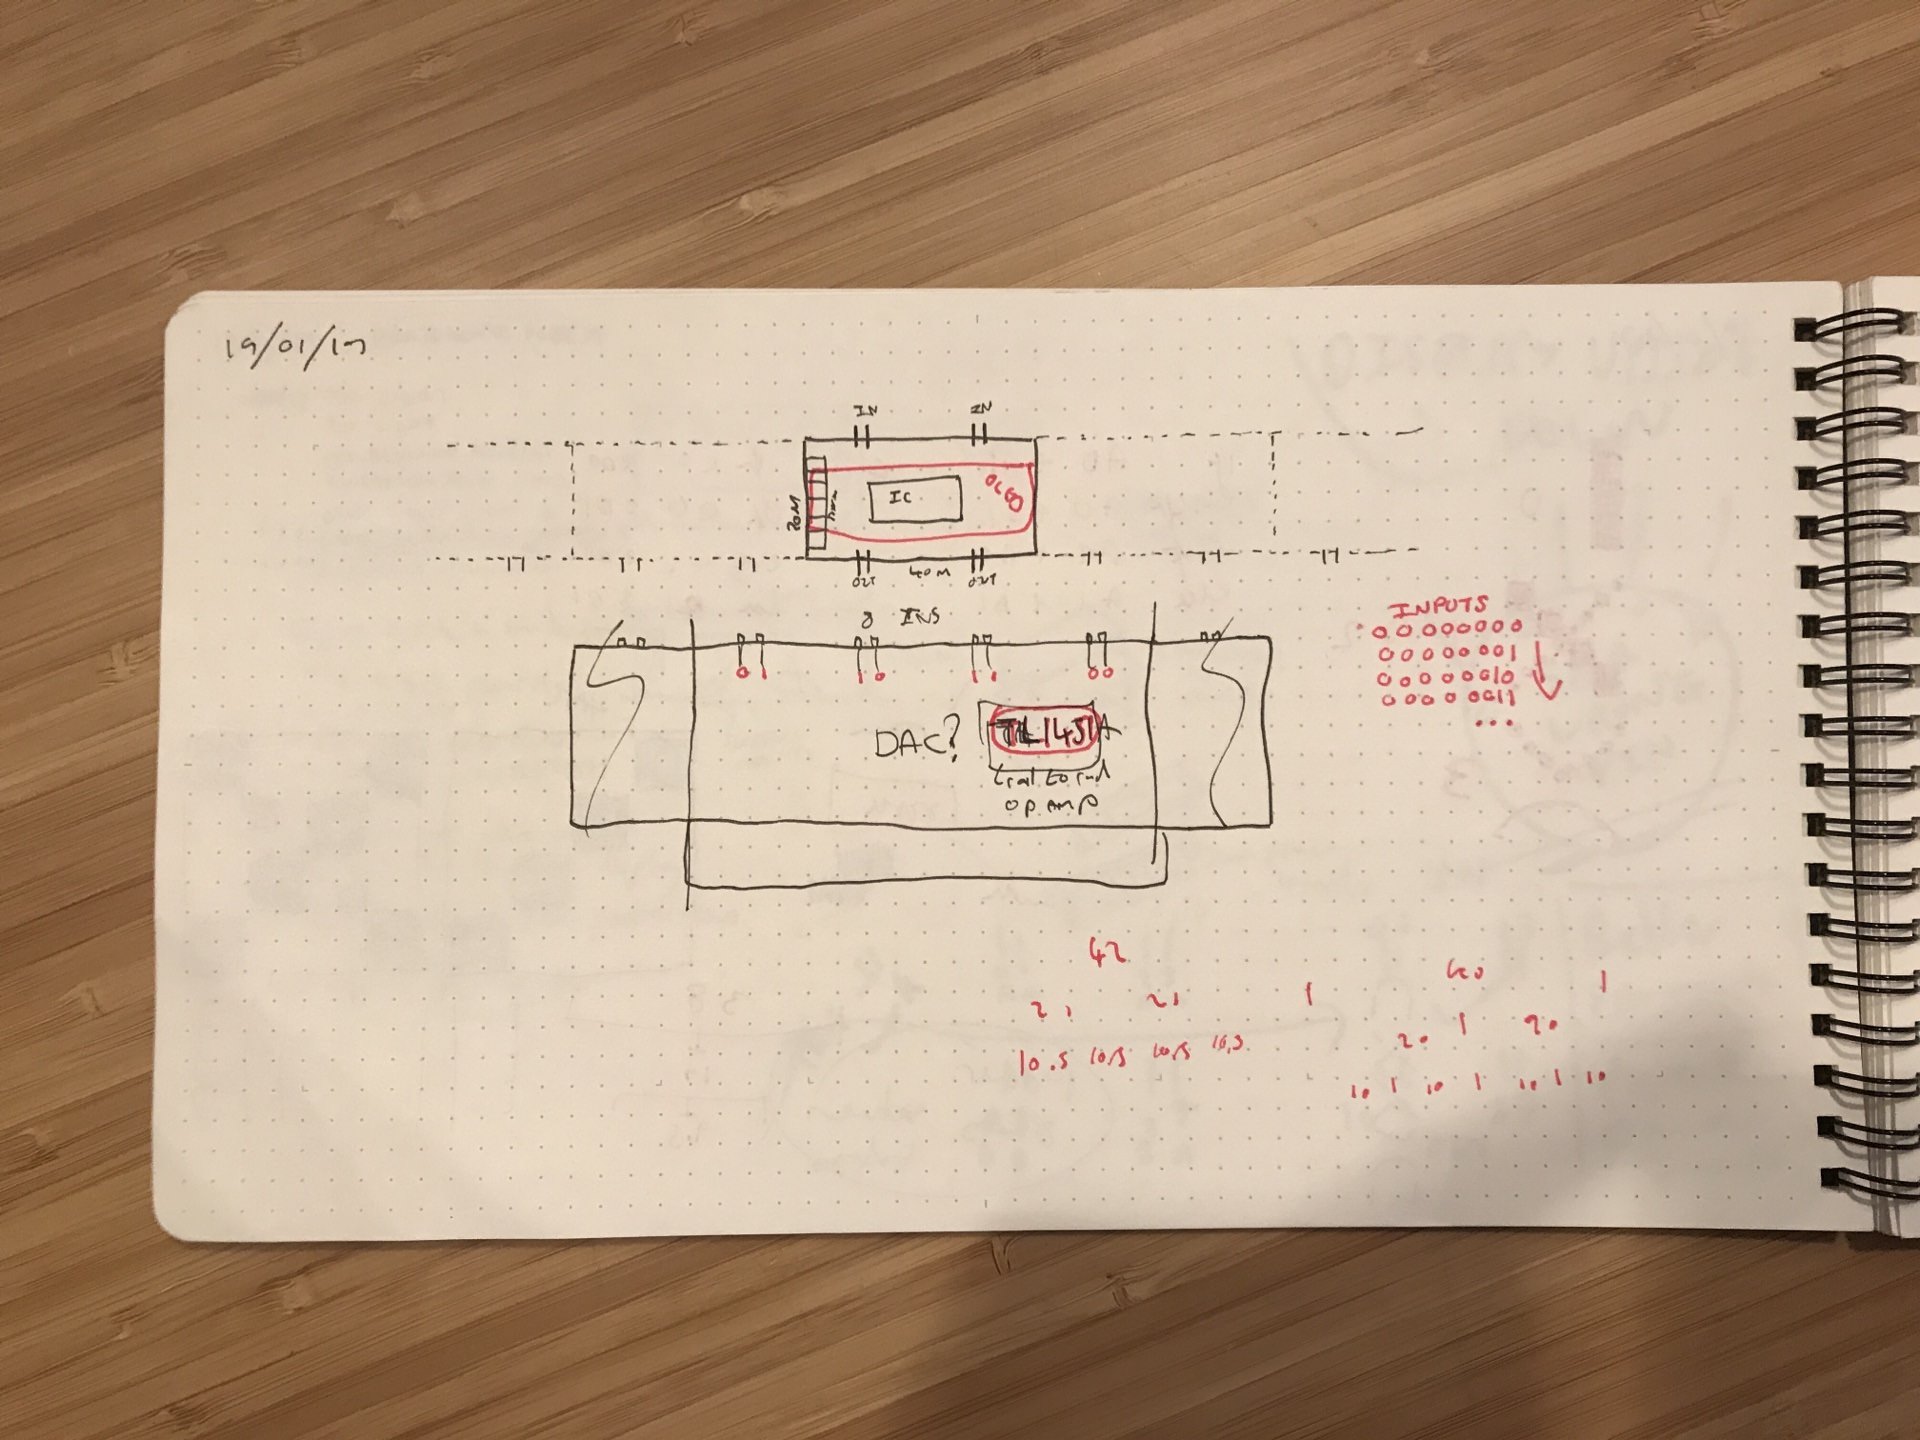 19/01/17
IN IN
IC
20M
40M
8 INS
0 1 1 0 1 1 0 0
DAC? TL1451A
rail to rail
op amp
INPUTS
00000000
00000001
00000010
00000011
...
42
21 21
10.5 10.5 10.5 10.5
40
1 1
20 1 20
10 1 10 1 10 1 10